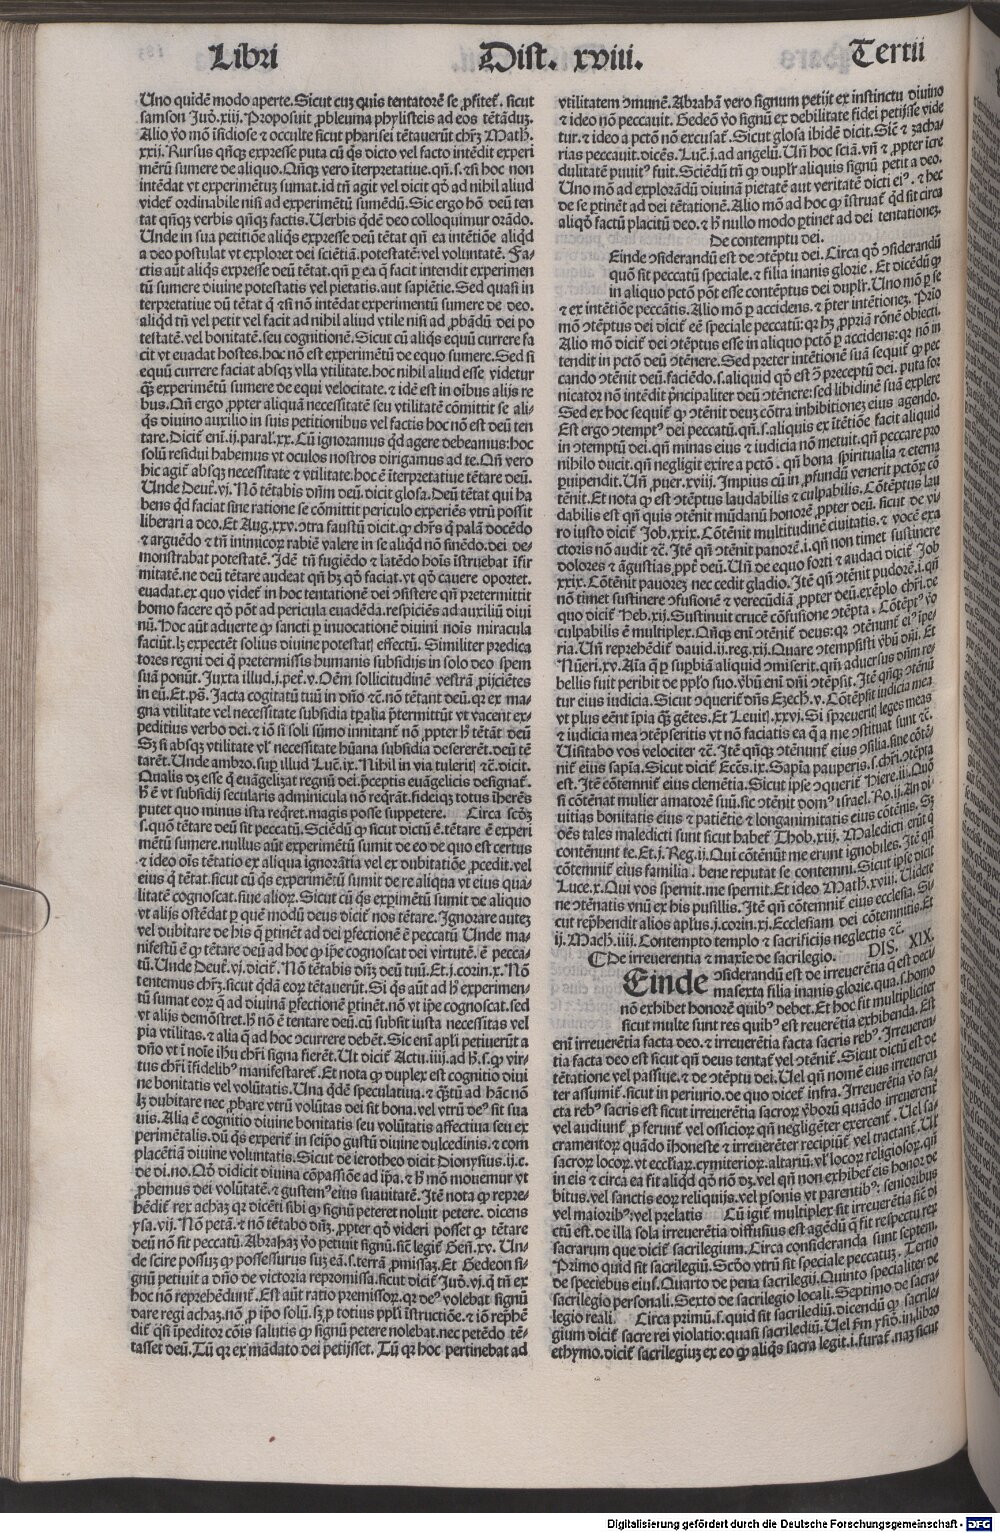 Libri Dist. xviii. Tertii
Uno quidē modo aperte. Sicut cuȝ quis tentatorē se ꝓfitet᷑. sicut
samson Iud̓. xiij. Proposuit ꝓbleuma phylisteis ad eos tētādūȝ.
Alio ṽo mō īsidiose & occulte sicut pharisei tētauerūt chr̄ȝ Math̓.
xxij. Rursus qn̄qȝ expresse puta cū q̄s dicto vel facto intēdit experi
mētū sumere de aliquo. Qn̄qȝ vero īterpretatiue. qn̄. s. & si hoc non
intēdat vt experimētuȝ sumat. id tn̄ agit vel dicit qd̓ ad nihil aliud
videt᷑ ordinabile nisi ad experimētū sumēdū. Sic ergo hō deū ten
tat qn̄qȝ verbis qn̄qȝ factis. Uerbis qdē deo colloquimur orādo.
Unde in sua petitiōe aliq̄s expresse deū tētat qn̄ ea intētiōe aliqd
a deo postulat vt exploret dei sciētiā. potestatē. vel voluntatē. Fa-
ctis aūt aliq̄s expresse deū tētat. qn̄ ꝑ ea q̄ facit intendit experimen
tū sumere diuine potestatis vel pietatis. aut sapiētie. Sed quasi in
terpretatiue dū tētat q̄ & si nō intēdat experimentū sumere de deo.
aliqd tn̄ vel petit vel facit ad nihil aliud vtile nisi ad ꝓbādū dei po
testatē. vel bonitatē. seu cognitionē. Sicut cū aliq̄s equū currere fa
cit vt euadat hostes. hoc nō est experimētū de equo sumere. Sed si
equū currere faciat absqȝ vlla vtilitate. hoc nihil aliud esse videtur
q̄ȝ experimētū sumere de equi velocitate. & idē est in oībus alijs re
bus. Qn̄ ergo ꝓpter aliquā necessitatē seu vtilitatē cōmittit se ali-
q̄s diuino auxilio in suis petitionibus vel factis hoc nō est deū ten
tare. Dicit᷑ em̄. ij. paral. xx. Cū ignoramus qd agere debeamus: hoc
solū residui habemus vt oculos nostros dirigamus ad te. Qn̄ vero
hic agit᷑ absqȝ necessitate & vtilitate. hoc ē īterpretatiue tētare deū.
Unde Deut̓. vj. Nō tētabis dn̄m deū. dicit glosa. Deū tētat qui ha
bens qd faciat sine ratione se cōmittit periculo experiēs vtrū possit
liberari a deo. Et Aug. xxv. ꝯtra faustū dicit. ꝙ chr̄s q̄ palā docēdo
& arguēdo & tn̄ inimicoꝝ rabiē valere in se aliqd nō sinēdo. dei de-
monstrabat potestatē. Idē tn̄ fugiēdo & latēdo hoīs īstruebat īfir
mitatē. ne deū tētare audeat qn̄ hȝ qd̓ faciat. vt qd̓ cauere oportet.
euadat. ex quo videt᷑ in hoc tentationē dei ꝯsistere qn̄ pretermittit
homo facere qd̓ pōt ad pericula euadēda. respiciēs ad auxiliū diui
nū. Hȝ aūt aduerte ꝙ sancti ꝑ inuocationē diuini noīs miracula
faciūt. lȝ expectēt solius diuine potestatꝭ effectū. Similiter predica
tores regni dei q̄ pretermissis humanis subsidijs in solo deo spem
suā ponūt. Iuxta illud. j. pet᷑. v. Oēm sollicitudinē vestrā ꝓijciētes
in eū. Et. ps̄. Iacta cogitatū tuū in dn̄o &c̄. nō tētant deū. qꝛ ex ma-
gna vtilitate vel necessitate subsidia tꝑalia p̄termittūt vt vacent ex-
peditius verbo dei. & iō si soli sūmo innitant᷑ nō ꝓpter h̓ tētāt deū
Sȝ si absqȝ vtilitate vl̓ necessitate hūana subsidia desererēt. deū tē
tarēt. Unde ambro. suꝑ illud Luc̄. ix. Nihil in via tuleritꝭ &c̄. dicit.
Qualis dȝ esse q̄ euāgelizat regnū dei. p̄ceptis euāgelicis designat᷑.
h̓ ē vt subsidij secularis adminicula nō req̄rāt. fideiqȝ totus īherēs
putet quo minus ista req̄ret. magis posse suppetere. Circa scd̓ȝ
s. quō tētare deū sit peccatū. Sciēdū ꝙ sicut dictū ē. tētare ē experi
mētū sumere. nullus aūt experimētū sumit de eo de quo est certus
& ideo oīs tētatio ex aliqua ignorātia vel ex dubitatiōe ꝓcedit. vel
eius q̄ tētat. sicut cū q̄s experimētū sumit de re aliqua vt eius qua-
litatē cognoscat. siue alioꝝ. Sicut cū q̄s exꝑimētū sumit de aliquo
vt alijs ostēdat ꝑ quē modū deus dicit᷑ nos tētare. Ignorare auteȝ
vel dubitare de his q̄ ꝑtinēt ad dei ꝑfectionē ē peccatū Unde ma-
nifestū ē ꝙ tētare deū ad hoc ꝙ ip̄e cognoscat dei virtutē. ē pecca-
tū. Unde Deut̓. vj. dicit᷑. Nō tētabis dn̄ȝ deū tuū. Et. j. corin. x. Nō
tentemus chr̄ȝ. sicut q̄dā eoꝝ tētauerūt. Si q̄s aūt ad h̓ experimen-
tū sumat eoꝝ q̄ ad diuinā ꝑfectionē ꝑtinēt. nō vt ip̄e cognoscat. sed
vt alijs demōstret. h̓ nō ē tentare deū. cū subsit iusta necessitas vel
pia vtilitas. & alia q̄ ad hoc ꝯcurrere debēt. Sic em̄ apl̓i petiuerūt a
dn̄o vt ī noīe ihu chr̄i signa fierēt. Ut dicit᷑ Actu. iiij. ad h̓. s. ꝙ vir-
tus chr̄i īfidelibꝰ manifestaret᷑. Et nota ꝙ duplex est cognitio diui
ne bonitatis vel volūtatis. Una q̄dē speculatiua. & q̄ȝtū ad hāc nō
lȝ dubitare nec ꝓbare vtrū volūtas dei sit bona. vel vtrū deꝰ sit sua
uis. Alia ē cognitio diuine bonitatis seu volūtatis affectiua seu ex
perimētalis. dū q̄s experit᷑ in seip̄o gustū diuine dulcedinis. & com
placētiā diuine voluntatis. Sicut de ierotheo dicit Dionysius. ij. c.
de di. no. Qd̓ didicit diuina cōpassiōe ad ip̄a. & h̓ mō mouemur vt
ꝓbemus dei volūtatē. & gustemꝰ eius suauitatē. Itē nota ꝙ repre-
hēdit᷑ rex achaȝ qꝛ dicēti sibi ꝙ signū peteret noluit petere. dicens
ysa. vij. Nō petā. & nō tētabo dn̄ȝ. ꝓpter qd̓ videri posset ꝙ tētare
deū nō sit peccatū. Abrahaȝ ṽo petiuit signū. sic̄ legit᷑ Gen̄. xv. Un-
de scire possuȝ ꝙ possessurus suȝ eā. s. terrā ꝓmissaȝ. Et Gedeon si-
gnū petiuit a dn̄o de victoria repromissa. sicut dicit᷑ Iud̓. vj. q̄ tn̄ ex
hoc nō reprehēdunt᷑. Est aūt ratio premissoꝝ. qꝛ deꝰ volebat signū
dare regi achaȝ. nō ꝓ ip̄o solū. sȝ ꝓ totius ppl̓i īstructiōe. & iō rep̄hē
dit᷑ q̄si īpeditor cōis salutis ꝙ signū petere nolebat. nec petēdo tē-
tasset deū. Tū qꝛ ex mādato dei petijsset. Tū qꝛ hoc pertinebat ad
vtilitatem ꝯmunē. Abrahā vero signum petijt ex instinctu diuino
& ideo nō peccauit. Gedeō ṽo signū ex debilitate fidei petijsse vide
tur. & ideo a pctō nō excusat᷑. Sicut glosa ibidē dicit. Sic̄ & zacha-
rias peccauit. dicēs. Luc̄. j. ad angelū. Un̄ hoc sciā. vn̄ & ꝓpter īcre
dulitatē punitꝰ fuit. Sciēdū tn̄ ꝙ dupl̓r aliquis signū petit a deo.
Uno mō ad explorādū diuinā pietatē aut veritatē dicti eiꝰ. & hec
de se ꝑtinet ad dei tētationē. Alio mō ad hoc ꝙ īstruat᷑ qd sit circa
aliqd̓ factū placitū deo. & h̓ nullo modo ꝑtinet ad dei tentationeȝ.
De contemptu dei.
Einde ꝯsiderandū est de ꝯtēptu dei. Circa qd̓ ꝯsiderandū
quō sit peccatū speciale. & filia inanis glorie. Et dicēdū ꝙ
in aliquo pctō pōt esse contēptus dei dupl̓r. Uno mō ꝑ se
& ex intētiōe peccātis. Alio mō ꝑ accidens. & p̄ter intētioneȝ. Prīo
mō ꝯtēptus dei dicit᷑ eē speciale peccatū: qꝛ hȝ ꝓpriā rōnē obiecti.
Alio mō dicit᷑ dei ꝯtēptus esse in aliquo pctō ꝑ accidens: qꝛ nō in
tendit in pctō deū ꝯtēnere. Sed preter intētionē suā sequit᷑ ꝙ pec
cando ꝯtēnit deū. faciēdo. s. aliquid qd̓ est ꝯ̄ preceptū dei. puta for
nicator nō intēdit pr̄ncipaliter deū ꝯtēnere: sed libidinē suā explere
Sed ex hoc sequit᷑ ꝙ ꝯtēnit deuȝ cōtra inhibitioneȝ eius agendo.
Est ergo ꝯtemptꝰ dei peccatū. qn̄. s. aliquis ex ītētiōe facit aliquid
in ꝯtemptū dei. qn̄ minas eius & iudicia nō metuit. qn̄ peccare pro
nihilo ducit. qn̄ negligit exire a pctō. qn̄ bona spiritualia & eterna
ꝑuipendit. Un̄ ꝓuer. xviij. Impius cū in ꝓfundū venerit pctōꝝ cō
tēnit. Et nota ꝙ est ꝯtēptus laudabilis & culpabilis. Cōtēptus lau
dabilis est qn̄ quis ꝯtēnit mūdanū honorē ꝓpter deū. sicut de vi-
ro iusto dicit᷑ Iob. xxix. Cōtēnit multitudinē ciuitatis. & vocē exa
ctoris nō audit &c̄. Itē qn̄ ꝯtēnit pauorē. i. qn̄ non timet sustinere
dolores & āgustias ꝓpt̓ deū. Un̄ de equo forti & audaci dicit᷑ Iob
xxix. Cōtēnit pauoreȝ nec cedit gladio. Itē qn̄ ꝯtēnit pudorē. i. qn̄
nō timet sustinere ꝯfusionē & verecūdiā ꝓpter deū. exēplo chr̄i. de
quo dicit᷑ Heb. xij. Sustinuit crucē cōfusione ꝯtēpta. Cōtēptꝰ ṽo
culpabilis ē multiplex. Qn̄qȝ em̄ ꝯtēnit᷑ deus: qꝛ ꝯtēnunt᷑ eiꝰ īpe-
ria. Un̄ reprehēdit᷑ dauid. ij. reg. xij. Quare ꝯtempsisti ṽbū dn̄i. Et
Nūeri. xv. Aīa q̄ ꝑ suꝑbiā aliquid ꝯmiserit. qm̄ aduersus dn̄m re-
bellis fuit peribit de pplo suo. ṽbū em̄ dn̄i ꝯtēpsit. Itē qn̄qȝ ꝯtēnū
tur eius iudicia. Sicut ꝯquerit᷑ dn̄s Ezech̓. v. Cōtēpsit iudicia mea
vt plus eēnt īpia q̄ȝ gētes. Et Leuitꝭ. xxvj. Si spreueritꝭ leges meas
& iudicia mea ꝯtēpseritis vt nō faciatis ea q̄ a me ꝯstituat sunt &c̄.
Uisitabo vos velociter &c̄. Itē qn̄qȝ ꝯtēnunt᷑ eius ꝯsilia. siue cōtē-
nit᷑ eius sapīa. Sicut dicit᷑ Eccs̄. ix. Sapīa pauperis. s. chr̄i. ꝯtēpta
est. Itē cōtemnit᷑ eius clemētia. Sicut ipse ꝯquerit᷑ Hiere. iij. Quō
si cōtēnat mulier amatorē suū. sic ꝯtēnit domꝰ israel. Ro. ij. An di-
uitias bonitatis eius & patiētie & longanimitatis eius cōtēnis. Sȝ
oēs tales maledicti sunt sicut habet᷑ Thob. xiij. Maledicti erūt q̄
contēnunt te. Et. j. Reg. ij. Qui cōtēnūt me erunt ignobiles. Itē qn̄
cōtemnit᷑ eius familia. bene reputat se contemni. Sicut ip̄e dicit
Luce. x. Qui vos spernit. me spernit. Et ideo Math̓. xviij. Uidete
ne ꝯtēnatis vnū ex his pusillis. Itē qn̄ cōtemnit᷑ eius ecclesia. Si-
cut rep̄hendit alios apl̓us. j. corin. xj. Ecclesiam dei cōtemnitis. Et
ij. Mach̓. iiij. Contempto templo & sacrificijs neglectis &c̄.
De irreuerentia & maxīe de sacrilegio. DIS. XIX.
Einde ꝯsiderandū est de irreuerētia q̄ est deci-
masexta filia inanis glorie. qua. s. homo
nō exhibet honorē quibꝰ debet. Et hoc fit multipliciter
sicut multe sunt res quibꝰ est reuerētia exhibenda. Est
em̄ irreuerētia facta deo. & irreuerētia facta sacris rebꝰ. Irreueren-
tia facta deo est sicut qn̄ deus tentat᷑ vel ꝯtēnit᷑. Sicut dictū est de
tētatione vel passiue. & de ꝯtēptu dei. Uel qn̄ nomē eius irreueren
ter assumit᷑. sicut in periurio. de quo dicet᷑ infra. Irreuerētia ṽo fa-
cta rebꝰ sacris est sicut irreuerētia sacroꝝ ṽboꝝū quādo irreuerent᷑
vel audiunt᷑ ꝓferunt᷑ vel officioꝝ qn̄ negligēter exercent᷑. Uel sa-
cramentoꝝ quādo īhoneste & irreuerēter recipiūt᷑ vel tractant᷑. Ul̓
sacroꝝ locoꝝ. vt eccl̓iaꝝ. cymiterioꝝ. altariū. vl̓ locoꝝ religiosoꝝ. qn̄
in eis & circa ea fit aliqd qd̓ nō dȝ. vel qn̄ non exhibet᷑ eis honor de
bitus. vel sanctis eoꝝ reliquijs. vel ꝑsonis vt parentibꝰ: senioribus
vel maioribꝰ: vel prelatis Cū igit᷑ multiplex sit irreuerētia sic̄ di
ctū est. de illa sola irreuerētia diffusius est agēdū q̄ fit respectu reꝝ
sacrarum que dicit᷑ sacrilegium. Circa consideranda sunt septem.
Primo quid sit sacrilegiū. Scd̓o vtrū sit speciale peccatuȝ. Tertio
de speciebus eius. Quarto de pena sacrilegij. Quinto specialiter de
sacrilegio personali. Sexto de sacrilegio locali. Septimo de sacra-
legio reali. Circa primū. s. quid sit sacriledium. dicendū ꝙ sacrile-
gium dicit᷑ sacre rei violatio: quasi sacriledium. Uel ẜm ysid̓o. in libro
ethymo. dicit᷑ sacrilegiuȝ ex eo ꝙ aliq̄s sacra legit. i. furat᷑. naȝ sicut
Digitalisierung gefördert durch die Deutsche Forschungsgemeinschaft - DFG